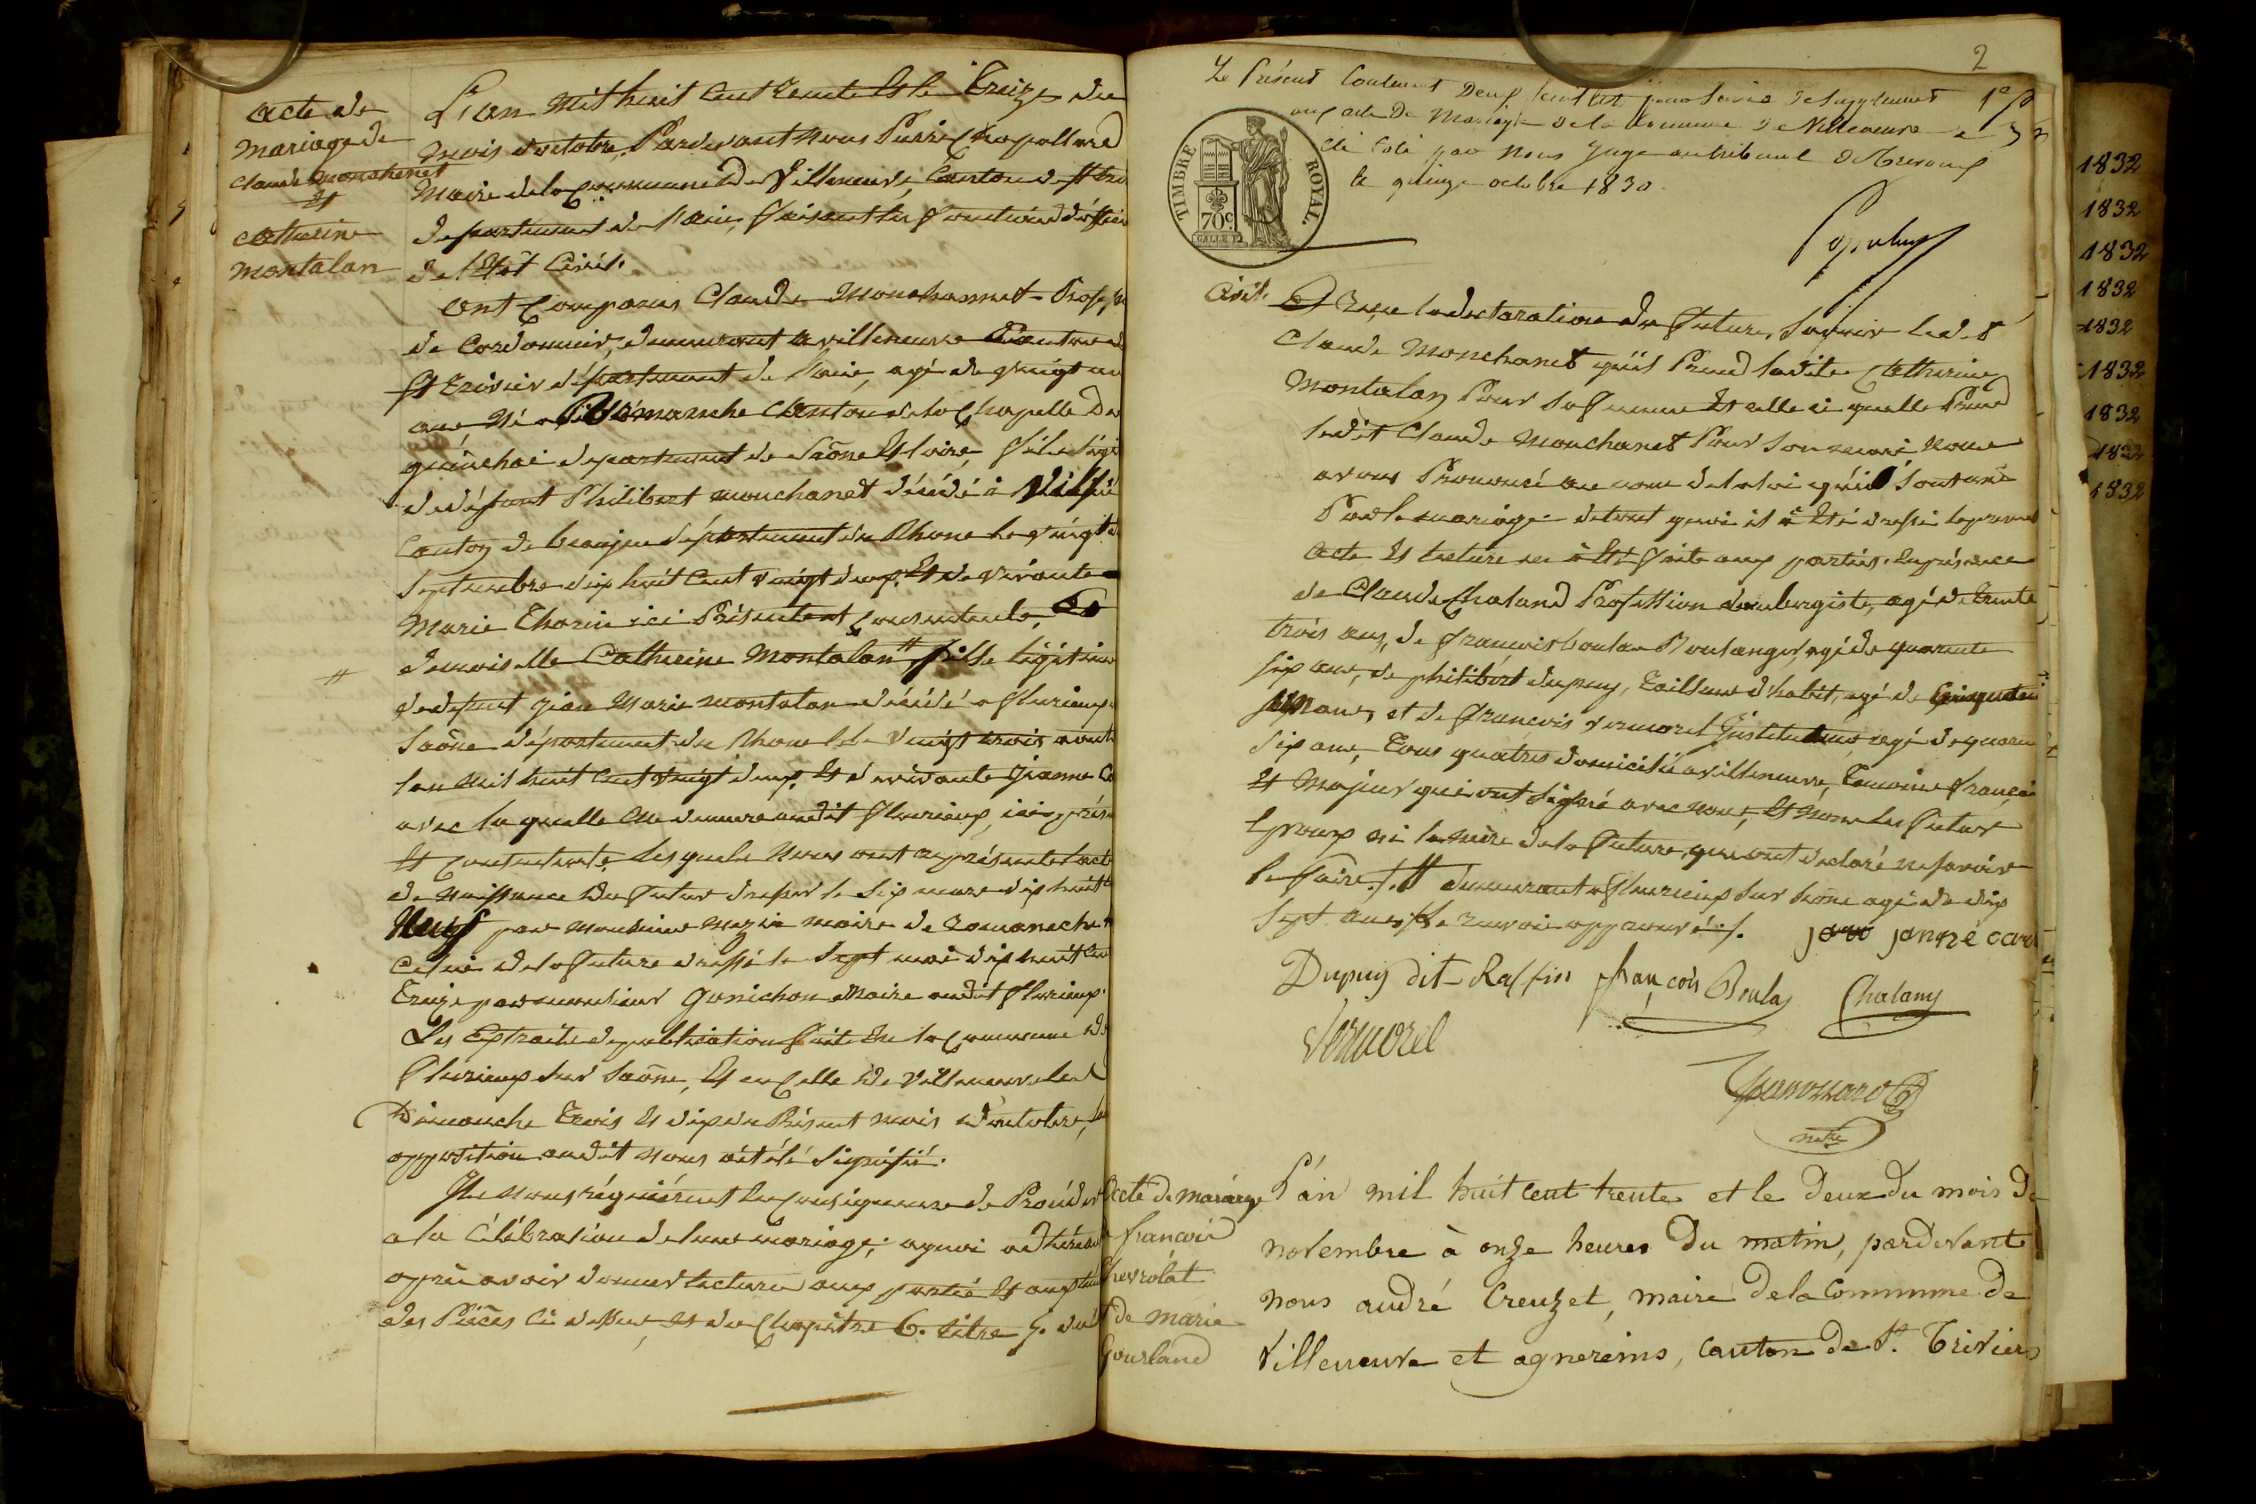 acte de
mariage de
claude monchanet
et
catherine
montalan
L'an mil huit cent trente et le treize du
mois d'octobre, Pardevant nous Pierre
Maire de la Commune de Villeneuve Canton de St tri
département de l'ain, faisant les fonctions d'officier
de l'état civil.
ont comparus Claude Monchannet Profession
de Cordonnier, demeurant a villeneuve Canton de
St trivier département de l'ain, agé de vingt un
ans né a Romanèche Canton de la Chapelle De
guinchai département de Saône et loire, fils légi
de défunt Philibert monchanet décédé à
Canton de beaujeu département du Rhone le vingt
Septembre dix huit cent vingt deux, et de vivante
Marie Thorin ici Présente et consentente, Et
demoiselle Catherine Montalan # fille légitime
#
de defunt jean Marie montalan décédé a fleurieux
Saône département du Rhone le vingt trois
l'an mil huit cent vingt deux, et de vivante jeanne
avec la quelle elle demeure audit fleurieux, ici prése
et consentente, lesquels nous ont représenté l'acte
de naissance du futur dressé le Six mars dix huit
Neuf par monsieur maire de romaneche
Celui de la future dressé le Sept mai dix huit cent
treize par monsieur Gonichon Maire audit fleurieux
Les Extraits de publication faite en la Commune de
fleurieux Sur Saône, et en Celle de villeneuve les
Dimanche trois et dix du Présent mois d'octobre,
opposition audit nous a été Signifié.
Ils nous réquièrent en conséquence de Procéder
a la célébration de leur mariage, a quoi adhérant
après avoir donner lecture aux partie et aux
des Pièces ci dessus, et du Chapitre 6. titre 5. du
2
Le Présent Contenant Deux feuillet pour Servir de Supplement
aux acte De Mariage de la Commune de Villeneuve
été Coté par Nous Juge au tribunal de Trevoux
le quinze octobre 1830.
TIMBRE ROYAL
70c
Civil. Et Reçu la déclaration du future, Savoir ledit
Claude Monchanet qu'il Prend ladite Catherine
Montalan Pour Sa femme et celle ci quelle Prend
ledit Claude Monchanet Pour Son mari, Nous
avons Prononcé au nom de la loi qu'il Sont unis
Par le mariage. de tout quoi il a été dressé le présent
acte et lecture en a été faite aux parties. En présence
de Claude Chaland Profession d'aubergiste, agé de trente
trois ans, de francois boulas Boulanger, agé de quarante
Six ans, de philibert dupuy, tailleur d'habit, agé de Cinquante
ans, et de francois vermorel Instituteur agé de quarante
Six ans, tous quatres domicilié a villeneuve, temoins francais
et Majeur qui ont Signé avec nous, et non les futur
Epoux ni la mère de la future, qui ont declaré ne savoir
le faire./. # demeurant a fleurieux Sur Saône agé de dix
Sept ans, Le renvoi approuvé ./.
Dupuy dit Raffin françois Boulas Chaland
Vermorel
Acte de mariage
de francois
Chevrolat
et de marie
Gourland
L'an mil huit cent trente et le Deux Du mois De
novembre à onze heures Du matin, pardevant
nous andré Creuzet, maire De la Commune De
Villeneuve et agnereins, canton De St. Triviers
1832
1832
1832
1832
1832
1832
1832
1832
1832